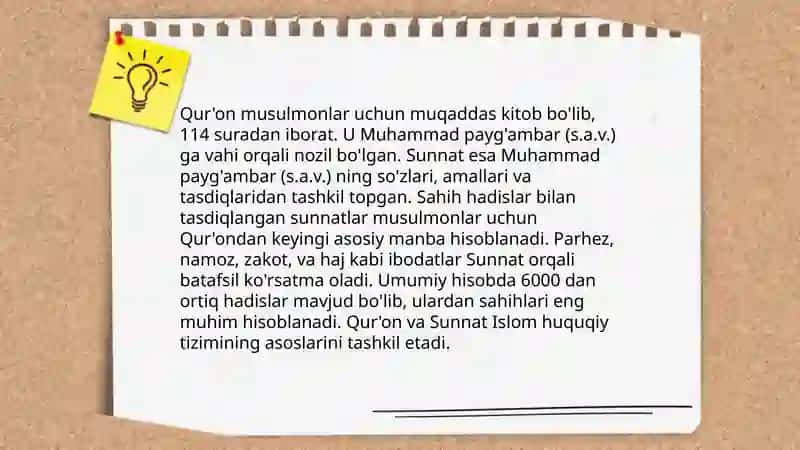 Qur'on musulmonlar uchun muqaddas kitob bo'lib,
114 suradan iborat. U Muhammad payg'ambar (s.a.v.)
ga vahi orqali nozil bo'lgan. Sunnat esa Muhammad
payg'ambar (s.a.v.) ning so'zlari, amallari va
tasdiqlaridan tashkil topgan. Sahih hadislar bilan
tasdiqlangan sunnatlar musulmonlar uchun
Qur'ondan keyingi asosiy manba hisoblanadi. Parhez,
namoz, zakot, va haj kabi ibodatlar Sunnat orqali
batafsil ko'rsatma oladi. Umumiy hisobda 6000 dan
ortiq hadislar mavjud bo'lib, ulardan sahihlari eng
muhim hisoblanadi. Qur'on va Sunnat Islom huquqiy
tizimining asoslarini tashkil etadi.